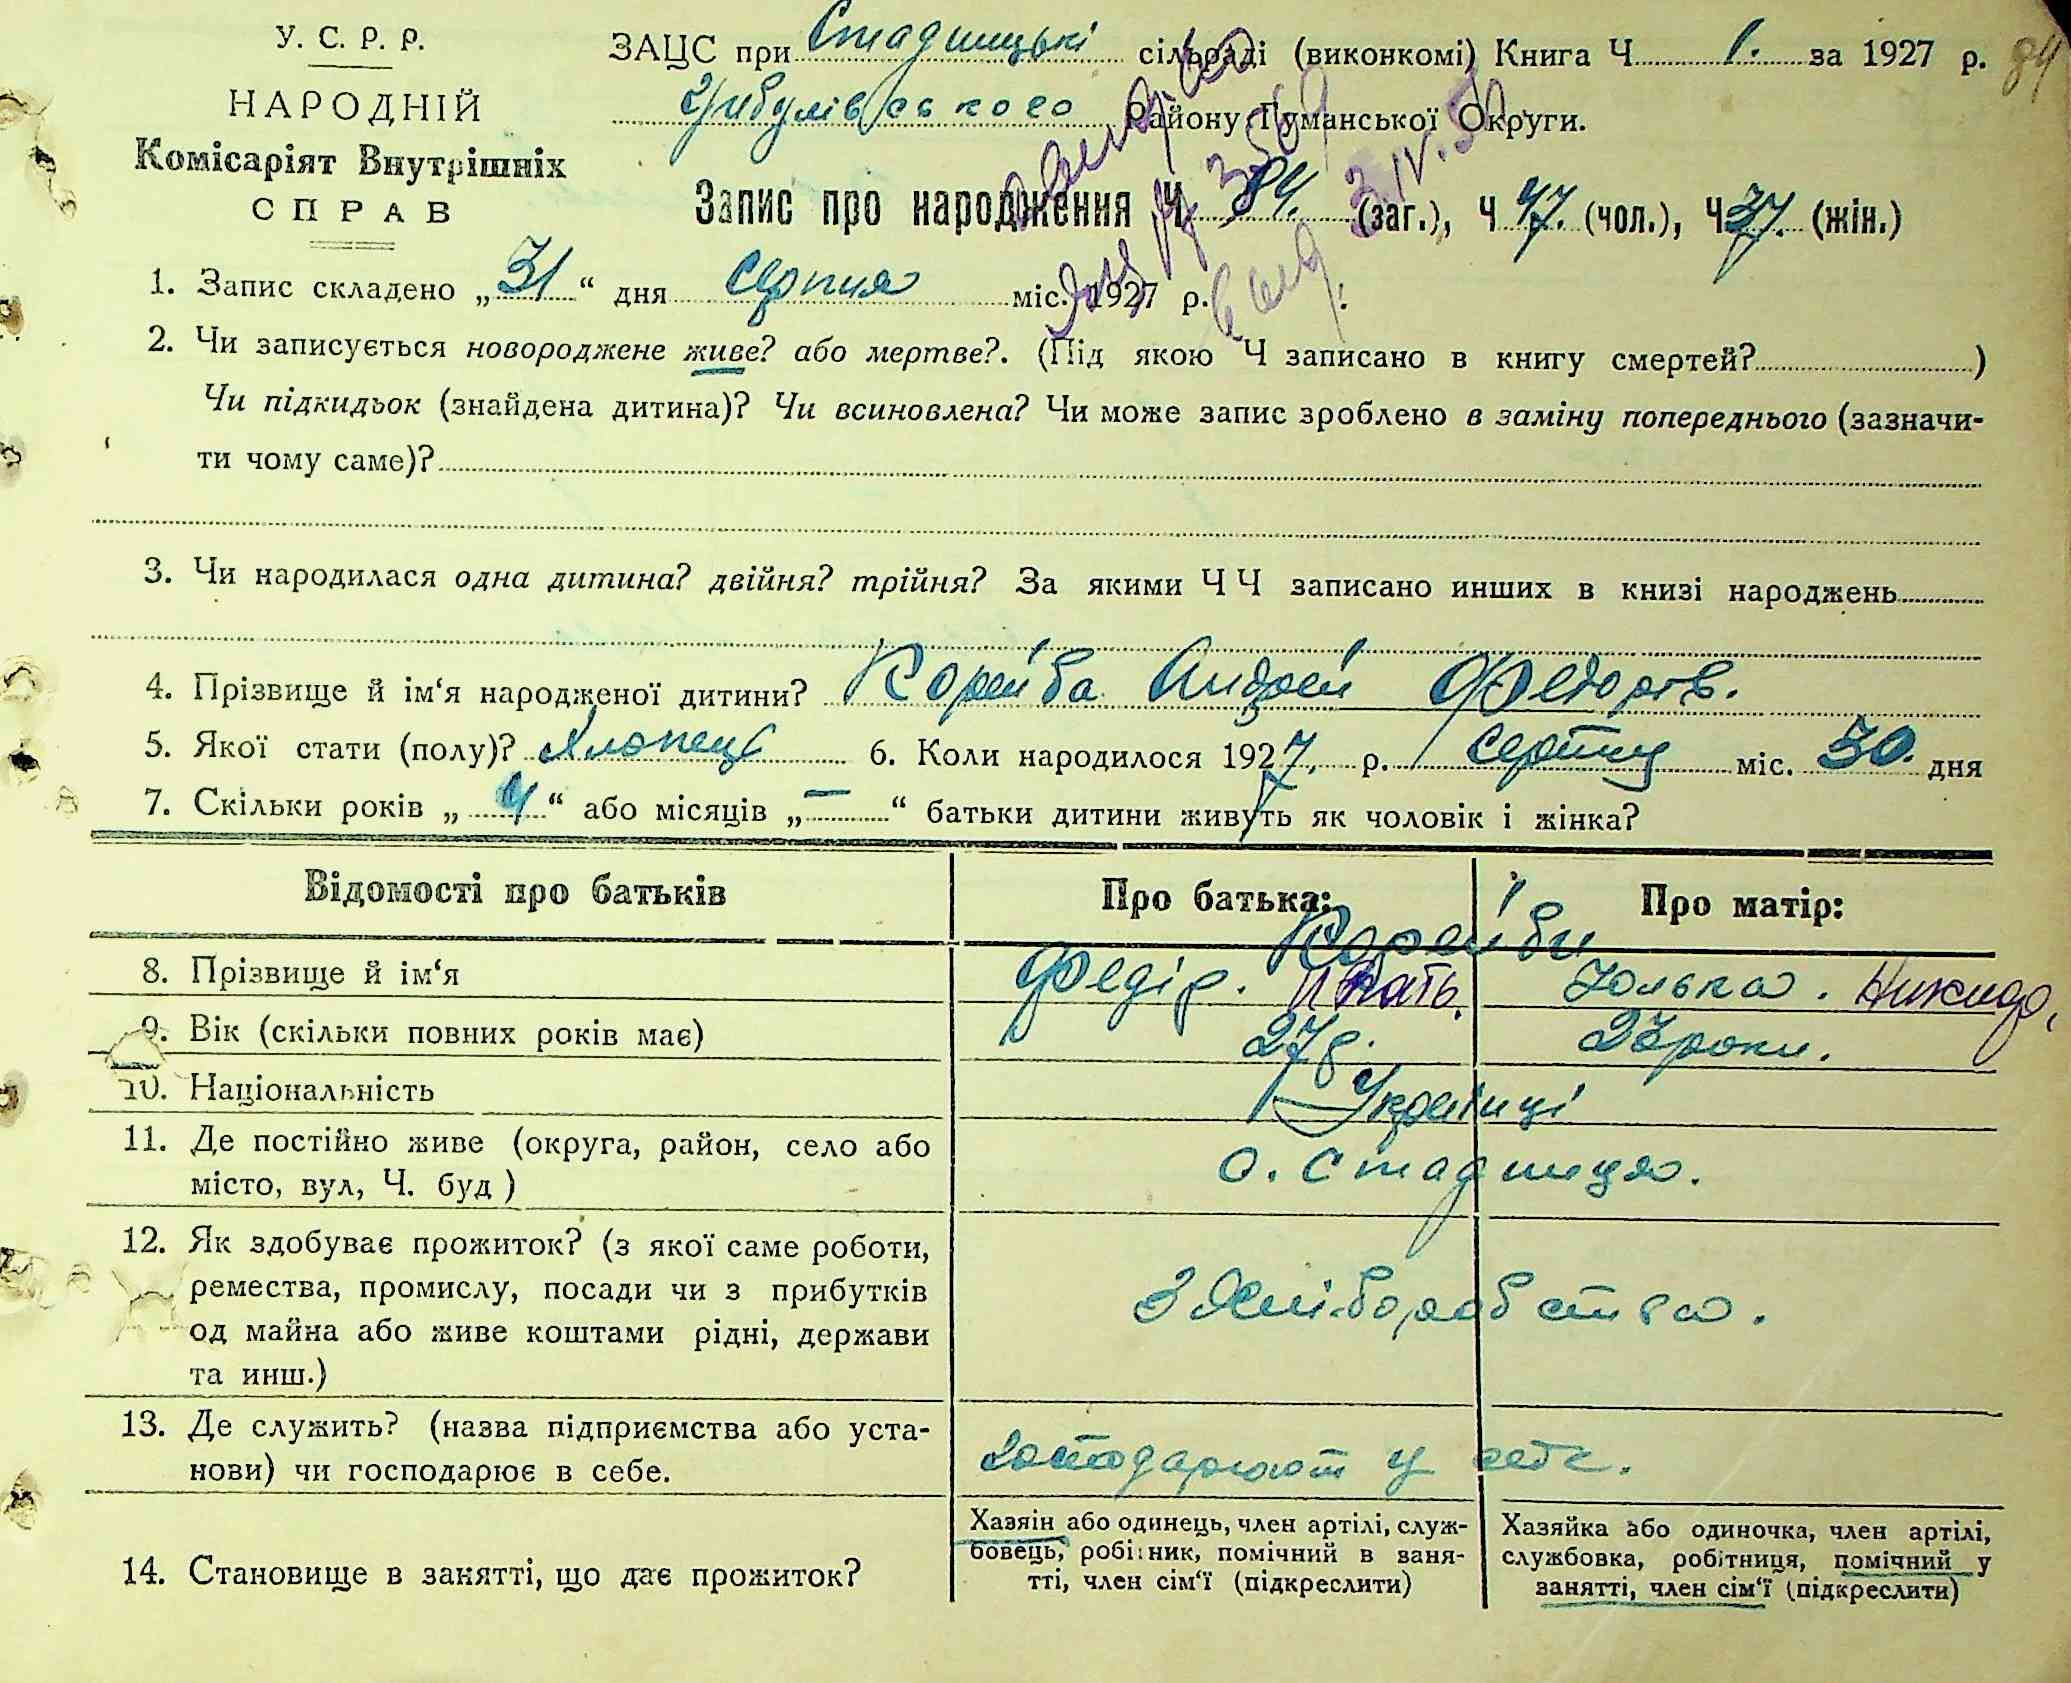 У. С. Р. Р.
НАРОДНІЙ
Комісаріят Внутрішніх
СПРАВ
ЗАЦС при Стадницькі сільраді (виконкомі) Книга Ч 1. за 1927 р. 84
Уманської Округи. Району
Запис про народження Ч 84. (заг.), Ч 47. (чол.), Ч 37. (жін.)
1. Запис складено „31“ дня серпня міс. 1927 р.
2. Чи записується новороджене живе? або мертве?. (Під якою Ч записано в книгу смертей? )
Чи підкидьок (знайдена дитина)? Чи всиновлена? Чи може запис зроблено в заміну попереднього (зазначи-
ти чому саме)?
3. Чи народилася одна дитина? двійня? трійня? За якими Ч Ч записано инших в книзі народжень
4. Прізвище й ім‘я народженої дитини? Корейба Андрей Федоров.
5. Якої стати (полу)? Хлопець 6. Коли народилося 1927 р. серпня міс. 30. дня
7. Скільки років „4“ або місяців „—“ батьки дитини живуть як чоловік і жінка?
Відомості про батьків Про батька: Про матір:
Корейби
8. Прізвище й ім‘я Федір. Юлька.
9. Вік (скільки повних років має) 27 р. 23 роки.
10. Національність Українці
11. Де постійно живе (округа, район, село або
місто, вул, Ч. буд ) с. Стадниця.
12. Як здобуває прожиток? (з якої саме роботи,
ремества, промислу, посади чи з прибутків
од майна або живе коштами рідні, держави
та инш.)
З хліборобства.
13. Де служить? (назва підприємства або уста-
нови) чи господарює в себе. господарюют у себе.
14. Становище в занятті, що дає прожиток?
Хазяін або одинець, член артілі, служ-
бовець, робітник, помічний в заня-
тті, член сім‘ї (підкреслити)
Хазяйка або одиночка, член артілі,
службовка, робітниця, помічний у
занятті, член сім‘ї (підкреслити)